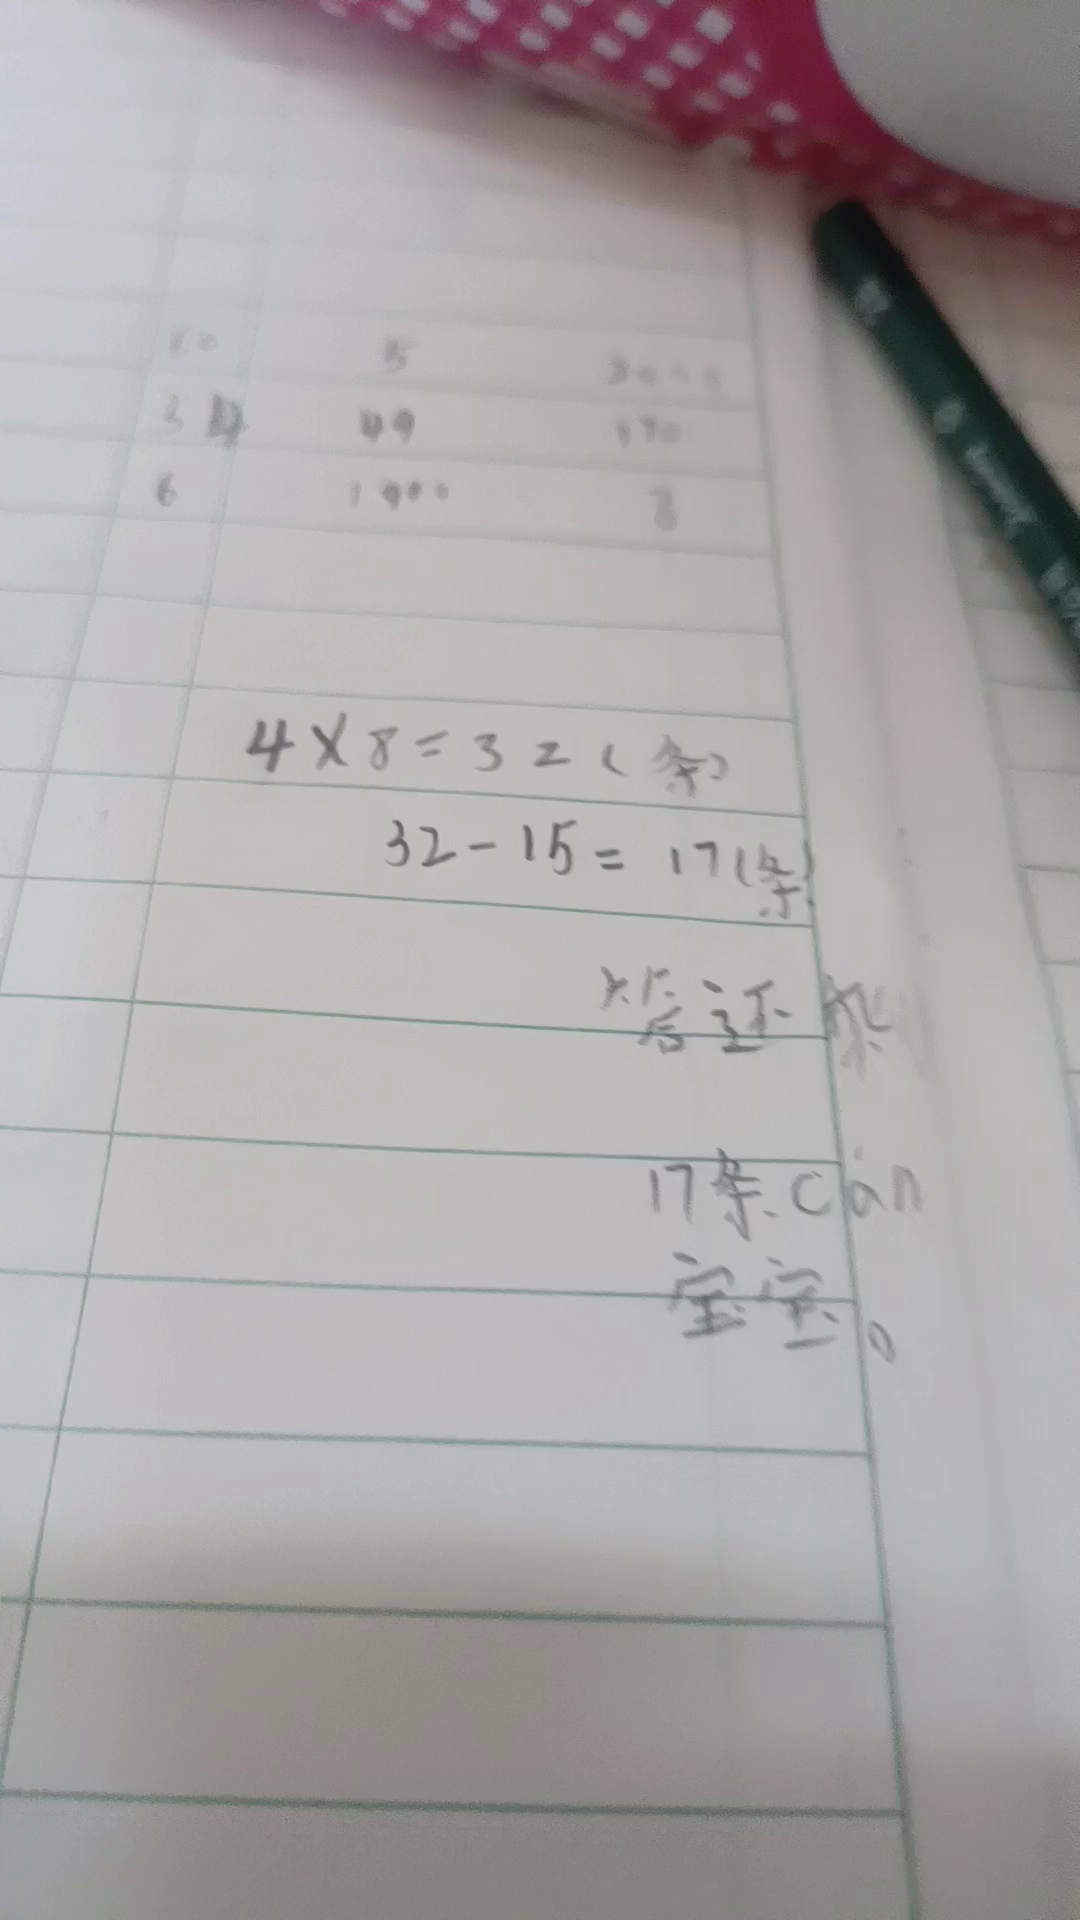 5
3 4 49 170
6 1900 8
4×8=32(条)
32-15=17(条)
答还
17条cán
宝宝。